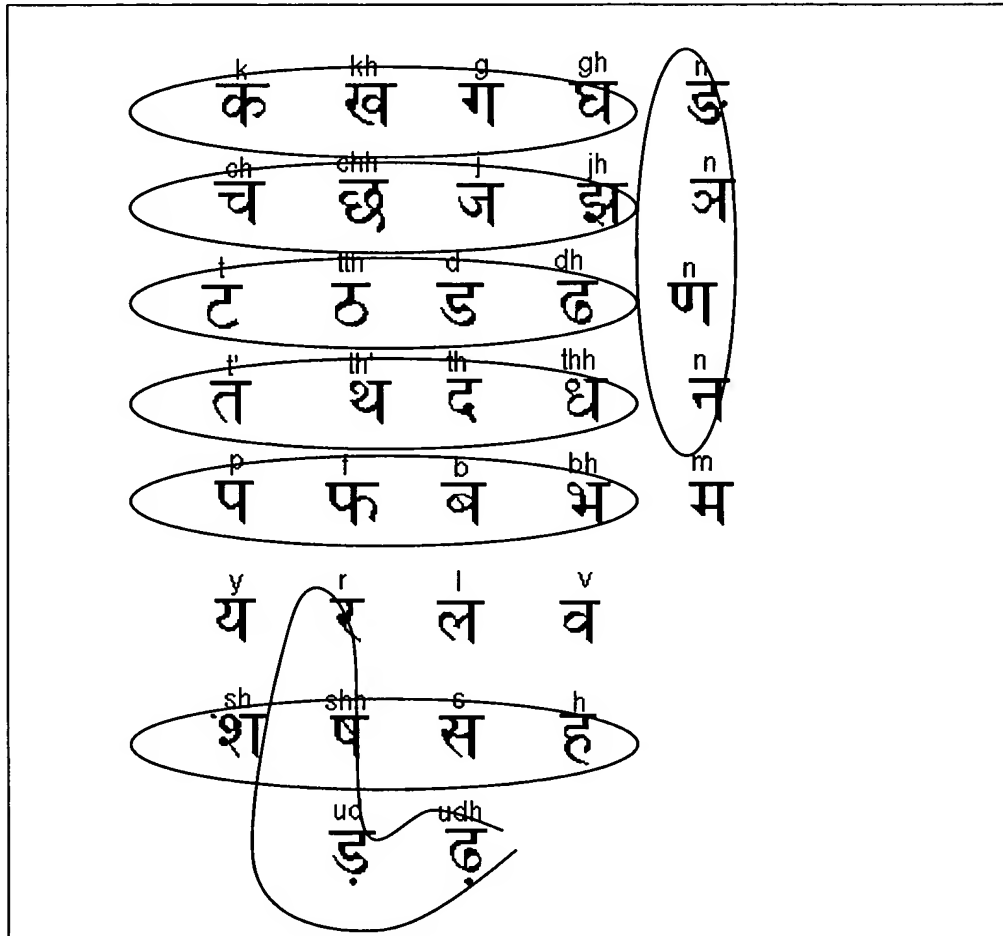 k kh g gh n
क ख ग घ ङ
ch chh j jh n
च छ ज झ ञ
t tth d dh n
ट ठ ड ढ ण
t' th' th thh n
त थ द ध न
p f b bh m
प फ ब भ म
y r l v
य र ल व
sh shh s h
श ष स ह
ud udh
ड़ ढ़